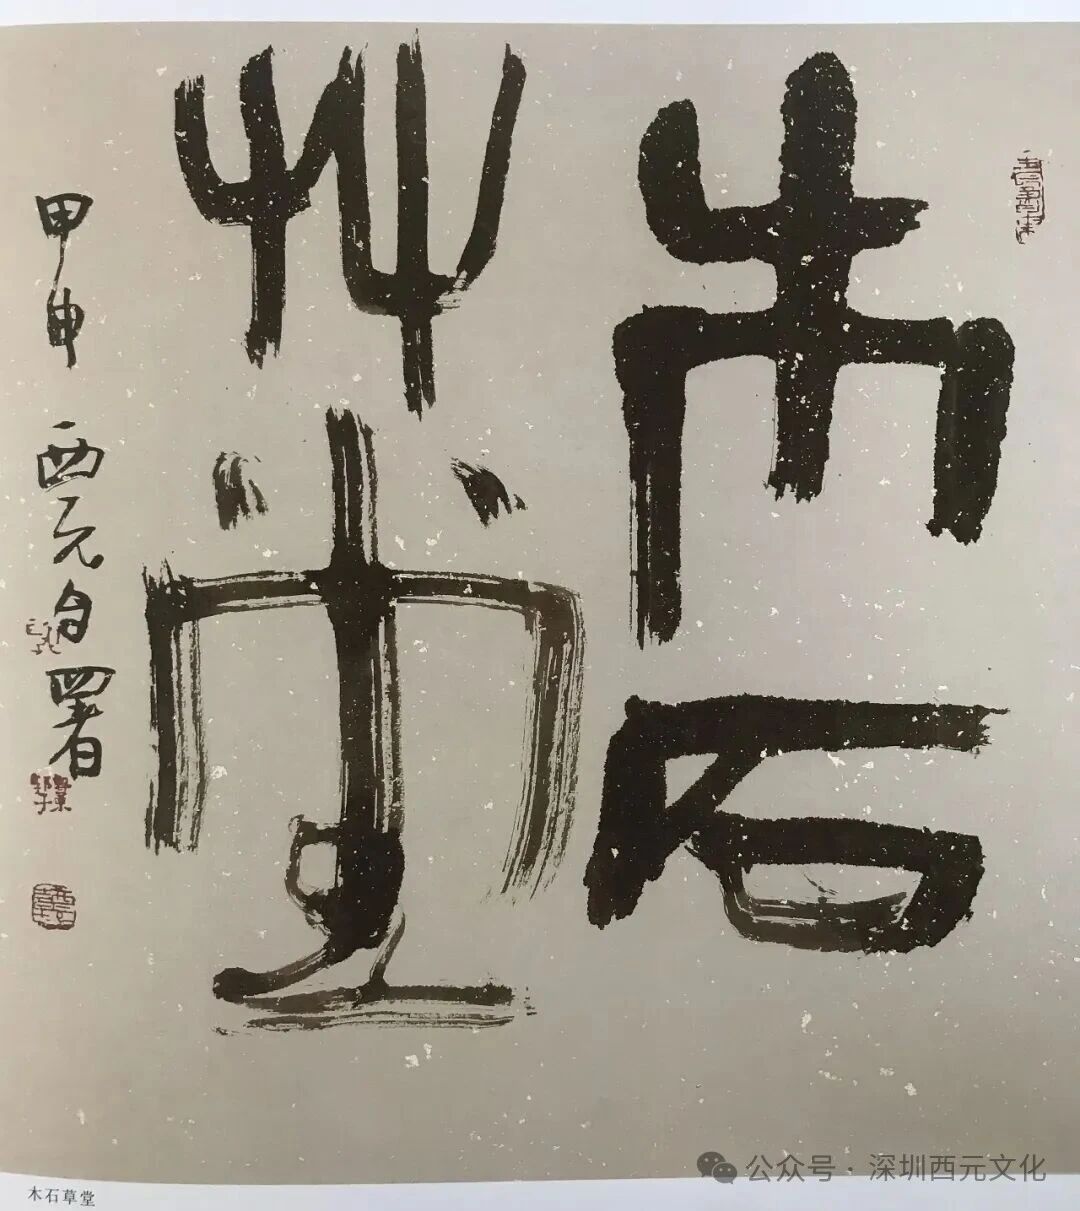 木石
艸堂
甲申 西元自署
木石草堂
公众号·深圳西元文化